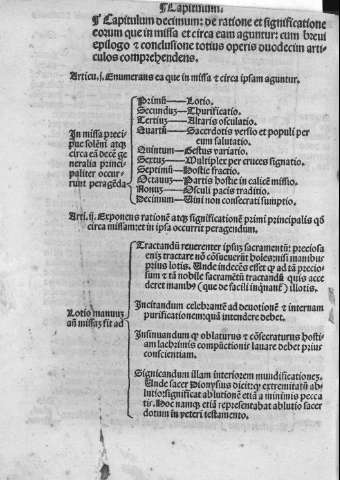 ¶ Capitulum.
¶ Capitulum decimum: de ratione et significatione
eorum que in missa et circa eam aguntur: cum brevi
epilogo & conclusione totius operis duodecim arti-
culos comprehendens.
Articu. j. Enumerans ea que in missa & circa ipsam aguntur.
In missa preci-
pue solēni atqꝫ
circa eā decē ge
neralia princi-
paliter occur-
runt peragēda
Primū——Lotio.
Secunduꝫ——Thurificatio.
Tertiuꝫ——Altaris osculatio.
Quartū——Sacerdotis versio et populi per
eum salutatio.
Quintum—Gestus variatio.
Sextuꝫ——Multiplex per cruces signatio.
Septimū——Hostie fractio.
Octauuꝫ——Partis hostie in calicē missio.
Nonuꝫ——Osculi pacis traditio.
Decimum——Uini non consecrati sumptio.
Arti. ij. Exponens rationē atqꝫ significationē primi principalis qđ
circa missam: et in ipsa occurrit peragendum.
Lotio manuuꝫ
añ missaꝫ fit ad
Tractandū reuerenter ipsuꝫ sacramentū: preciosa
enim tractare nō cōsueuerūt hoīes: nisi manibus
prius lotis. Unde indecēs esset ꝙ ad tā precio-
sum & tā nobile sacramētū tractandū quis acce
deret manibꝰ (que de facili inqnant̄) illotis.
Incitandum celebrantē ad deuotionē & internam
purificationem: quā intendere debet.
Insinuandum ꝙ oblaturus & cōsecraturus hosti-
am lachrimis compūctionis lauare debet prius
conscientiam.
Significandum illam interiorem mundificationeꝫ.
Unde sacer Dionysius dicit: ꝙ extremitatū ab-
lutio: significat ablutionē etiā a minimis pecca
tis. Hoc namqꝫ etiā representabat ablutio sacer
dotum in veteri testamento.